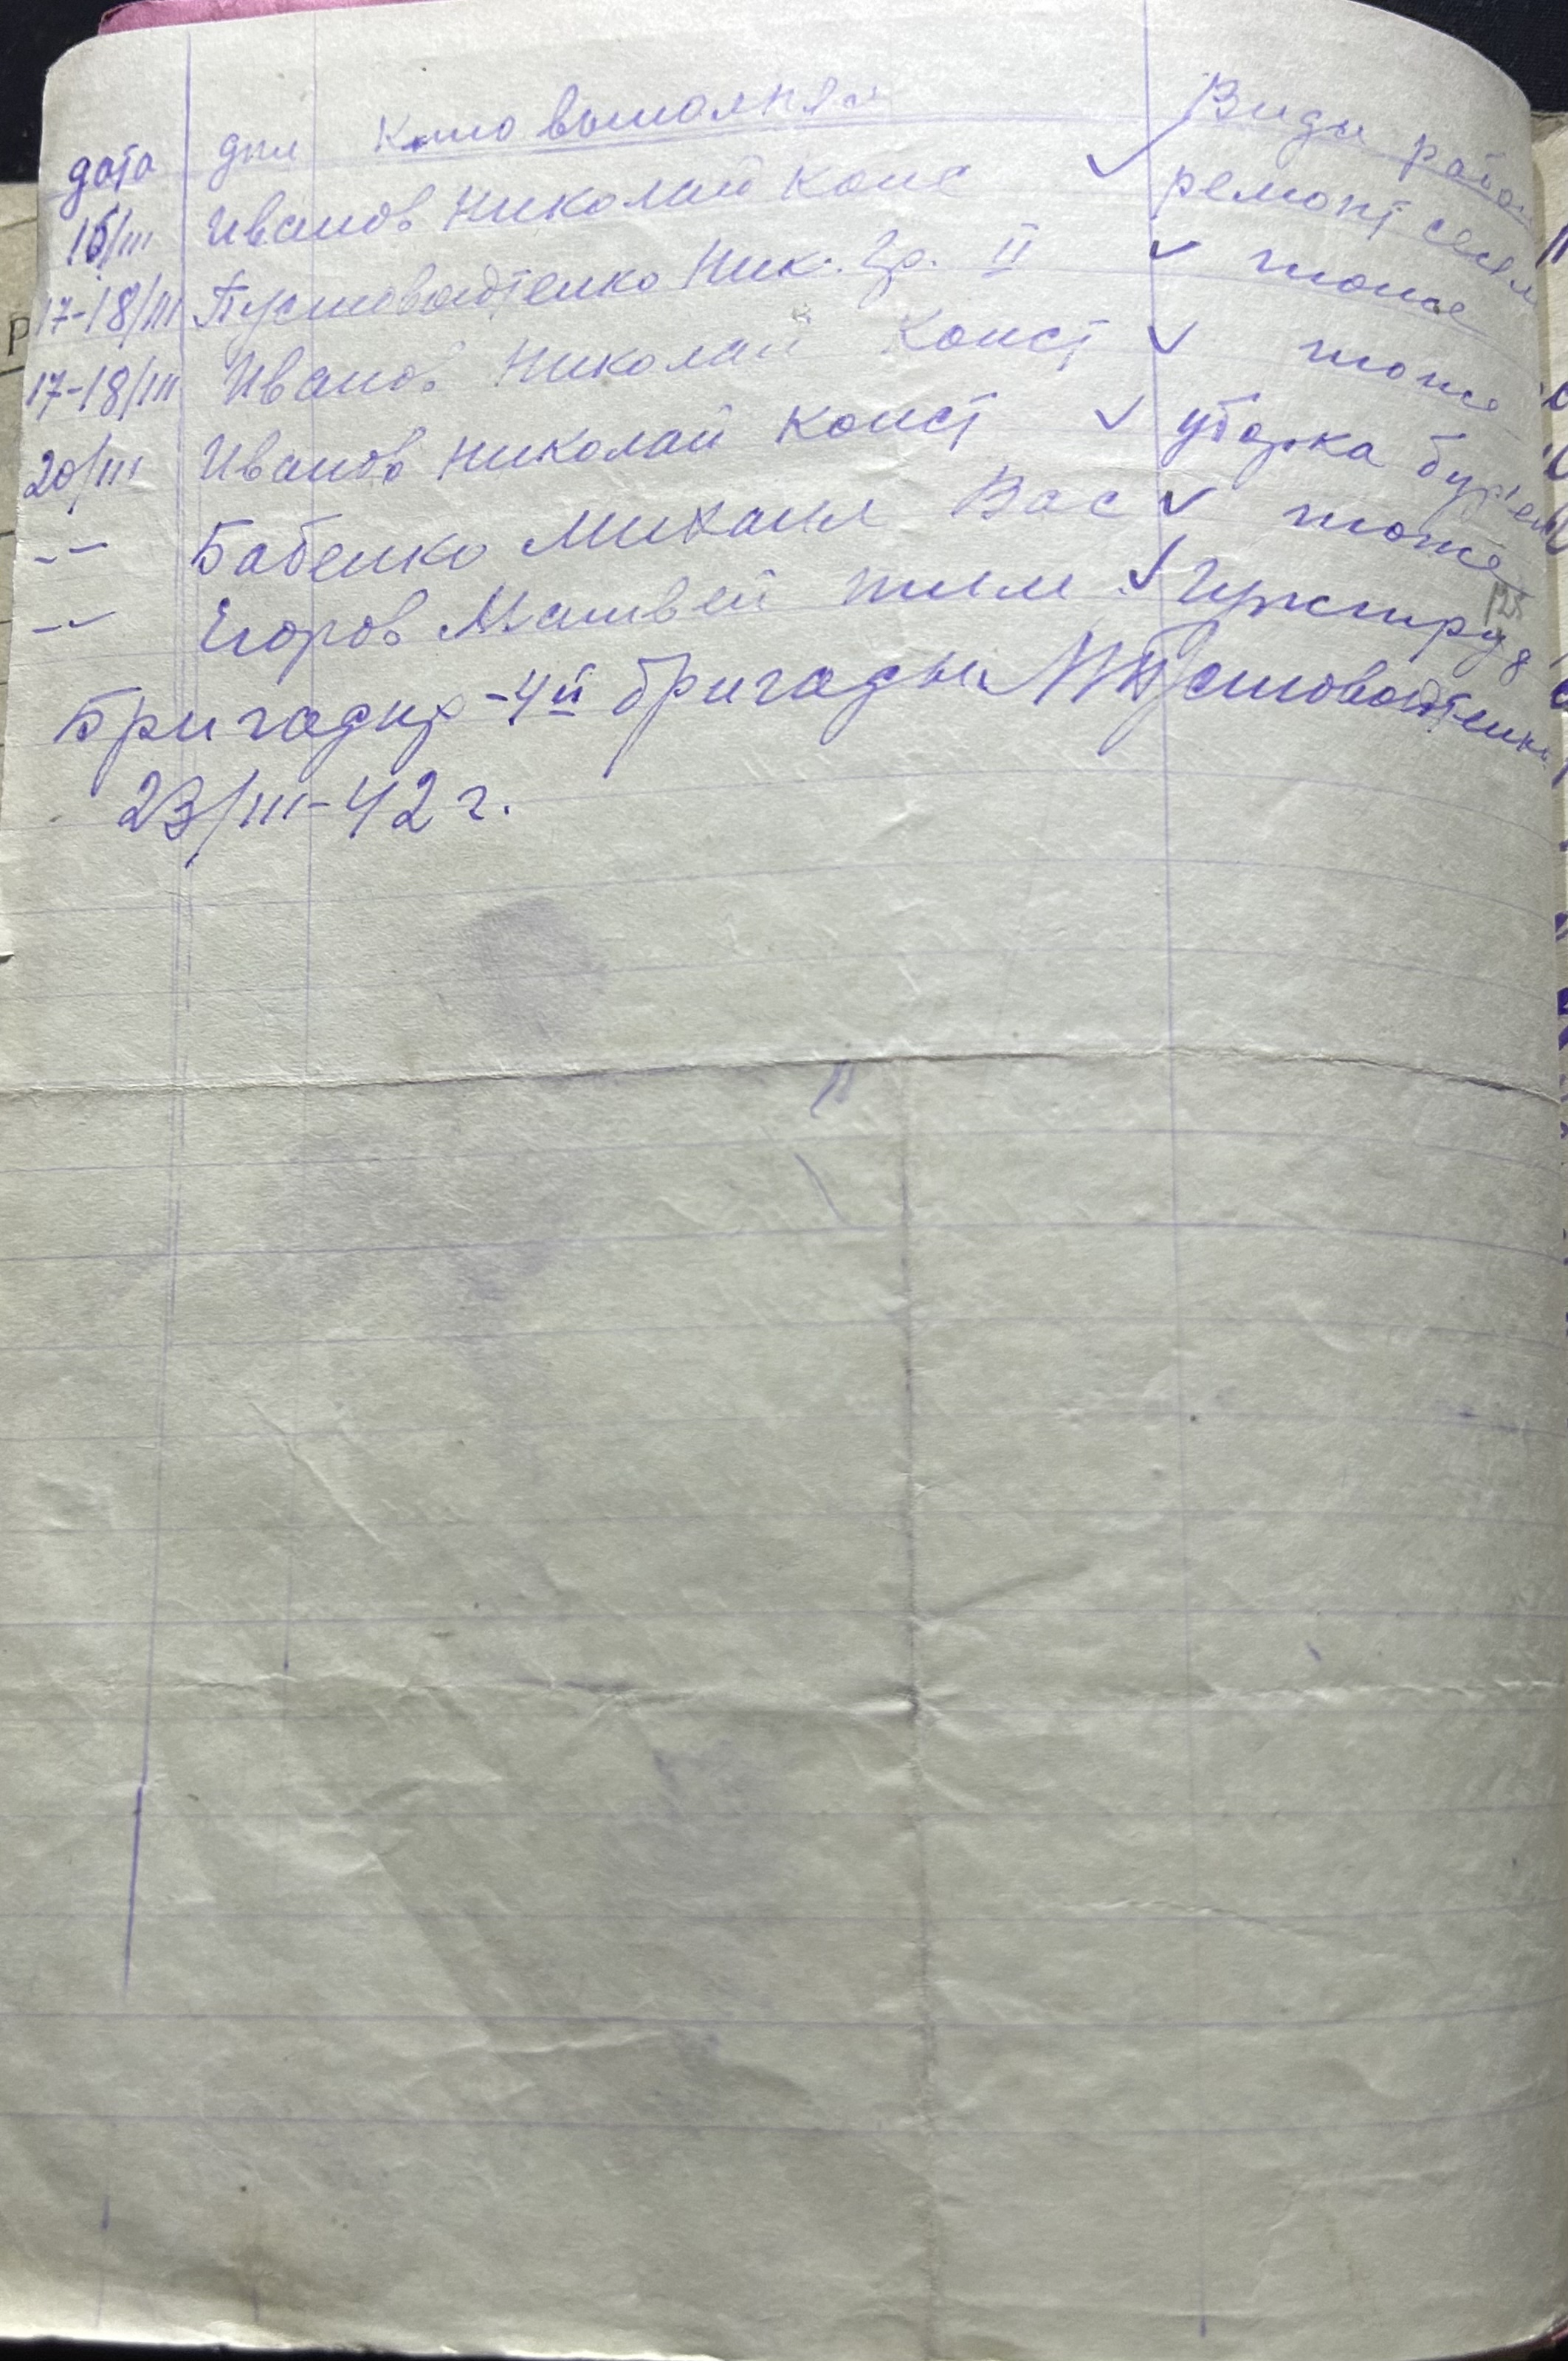 дата дни Кто выполнял Виды работ
15/III Иванов Николай Конс ✓ ремонт
17-18/III Пустовойтенко Ник. Гр. II ✓ тоже
17-18/III Иванов Николай Конст ✓ тоже
20/III Иванов Николай Конст ✓ уборка
-"- Бабенко Михаил Вас ✓ тоже
-"- Егоров Матвей тим ✓
Бригадир -4й бригады Пустовойтенко
23/III-42 г.